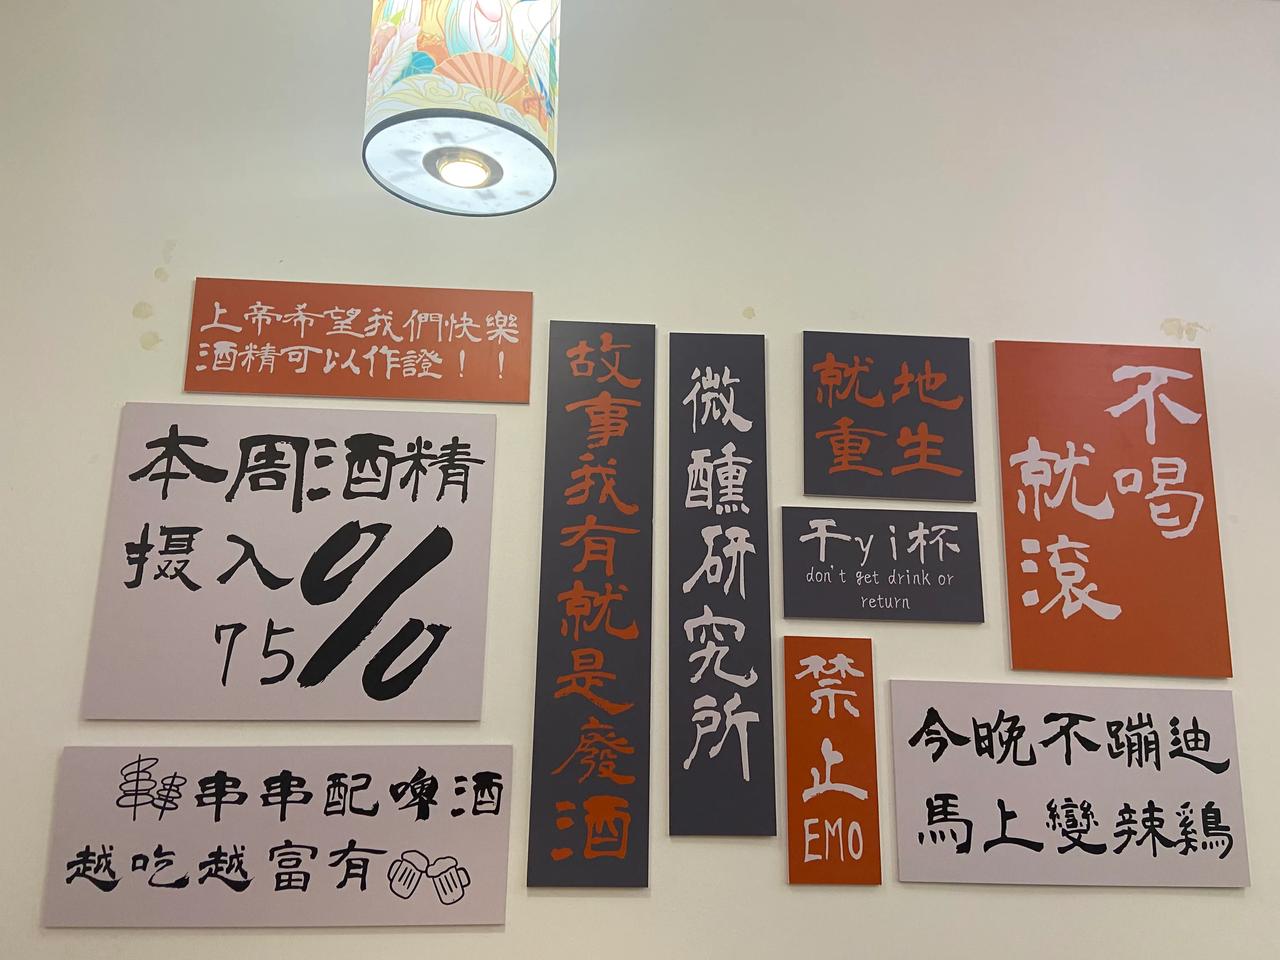 上帝希望我們快樂
酒精可以作證！！
本周酒精
摄入%
75
串串配啤酒
越吃越富有
故事我有就是廢酒
微醺研究所
就地
重生
干yi杯
don't get drink or
return
禁止EMO
不喝
就滾
今晚不蹦迪
馬上變辣鷄